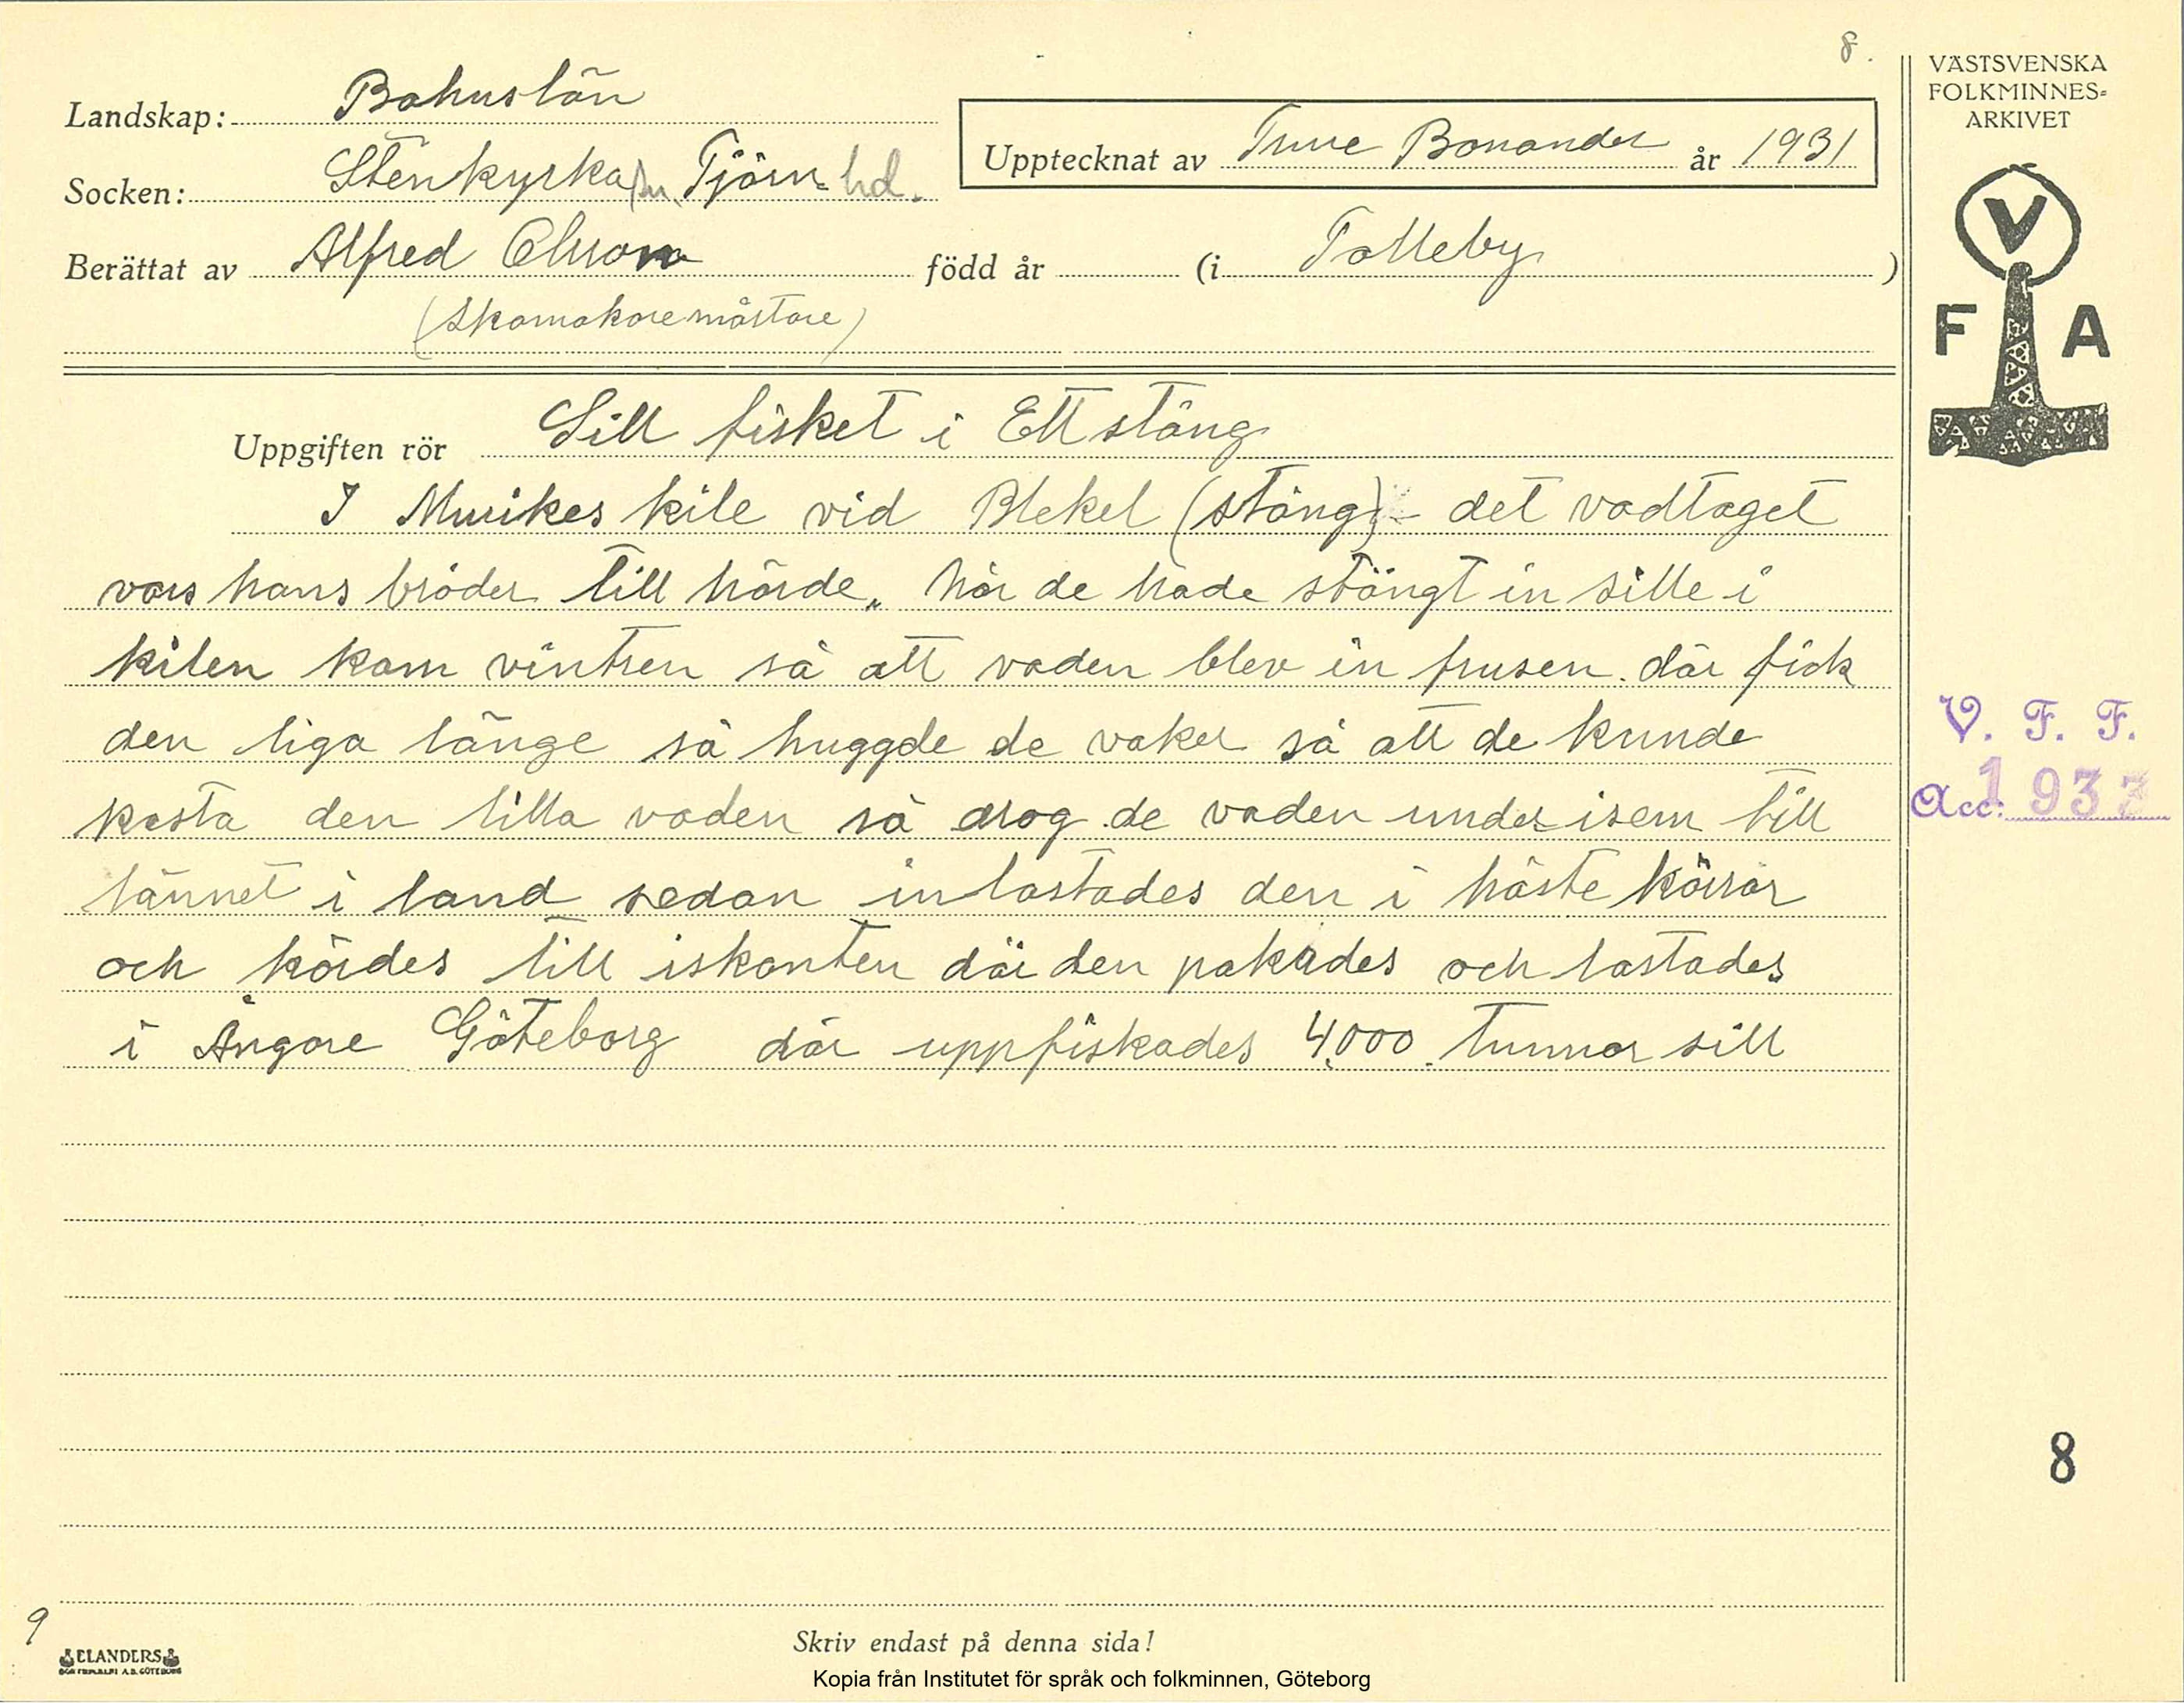 8.
VÄSTSVENSKA
FOLKMINNES=
ARKIVET
Landskap: Bohuslän
Upptecknat av Ture Bonander år 1931
Socken: Stenkyrka sn. Tjörn hd.
Berättat av Alfred Olsson född år (i Tolleby )
(Skomakoremästare)
V
F A
Uppgiften rör Sill fisket i Ett stäng
I Murikes kile vid Blekel (stäng) - det vadtaget
vars hans bröder till hörde. När de hade stängt in sille i
kilen kom vintren så att vaden blev in frusen. där fick
den liga länge så huggde de vaker så att de kunde
V. F. F.
kasta den lilla vaden så drog de vaden under isem till
Acc: 1933
lännet i land sedan inlastades den i häste kärrar
och kördes till iskanten där den pakades och lastades
i Ångare Göteborg där uppfiskades 4,000 tunnor sill
8
9
ELANDERS
Skriv endast på denna sida!
Kopia från Institutet för språk och folkminnen, Göteborg